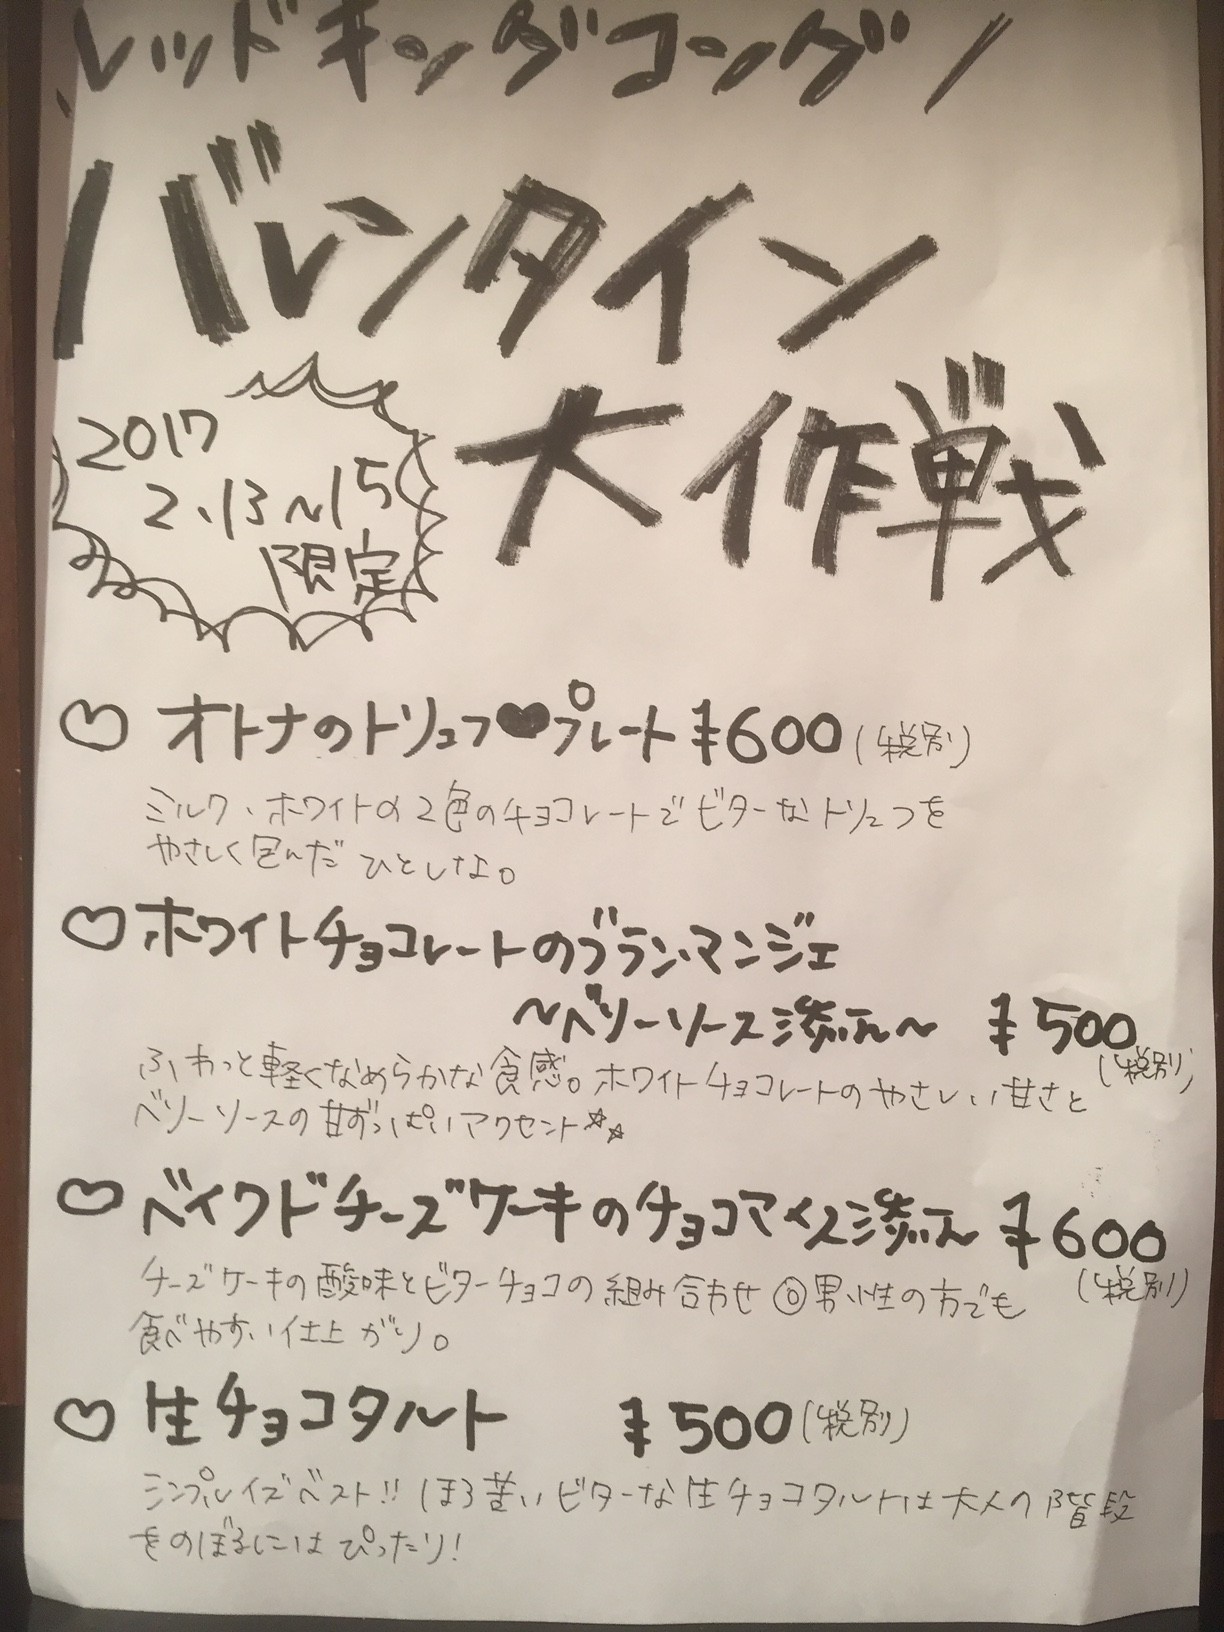 レッドキングコングノ
バレンタイン
大作戦
2017
2.13~15
限定
♡ オトナのトリュフ♥プレート ¥600(税別)
ミルク、ホワイトの2色のチョコレートでビターなトリュフを
やさしく包んだひとしな。
♡ホワイトチョコレートのブランマンジェ
~ベリーソース添え~ ¥500
(税別)
ふわっと軽くなめらかな食感。ホワイトチョコレートのやさしい甘さと
ベリーソースの甘ずっぱいアクセント☆☆
♡ ベイクドチーズケーキのチョコアイス添え ¥600
(税別)
チーズケーキの酸味とビターチョコの組み合わせ◎男性の方でも
食べやすい仕上がり。
♡ 生チョコタルト ¥500(税別)
シンプルイズベスト!! ほろ苦いビターな生チョコタルトは大人の階段
をのぼるにはぴったり!